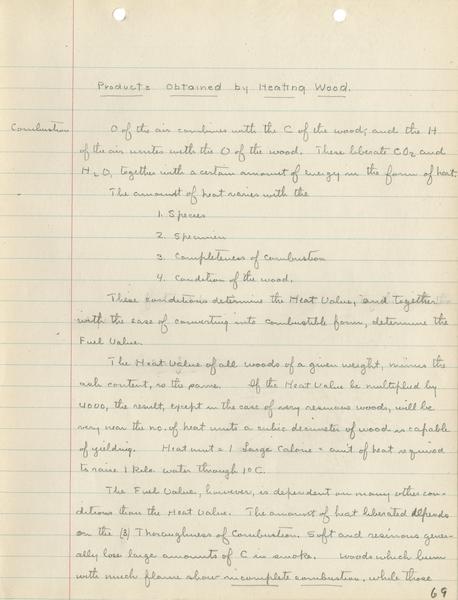 Products Obtained by Heating Wood.
Combustion O of the air combines with the C of the wood; and the H
of the air unites with the O of the wood. These liberate CO2 and
H2O, together with a certain amount of energy in the form of heat.
The amount of heat varies with the
1. Species
2. Specimen
3. Completeness of combustion
4. Condition of the wood.
These conditions determine the Heat Value, and together
with the ease of converting into combustible form, determine the
Fuel Value.
The Heat Value of all woods of a given weight, minus the
ash content, is the same. If the Heat Value be multiplied by
4000, the result, except in the case of very resinous woods, will be
very near the no. of heat units a cubic decimeter of wood is capable
of yielding. Heat unit = 1 Large Calorie = am't of heat required
to raise 1 kilo water through 1°C.
The Fuel Value, however, is dependent on many other con-
ditions than the Heat Value. The amount of heat liberated depends
on the (3) Thoroughness of Combustion. Soft and resinous gener-
ally lose large amounts of C in smoke. Woods which burn
with much flame show incomplete combustion, while those
69